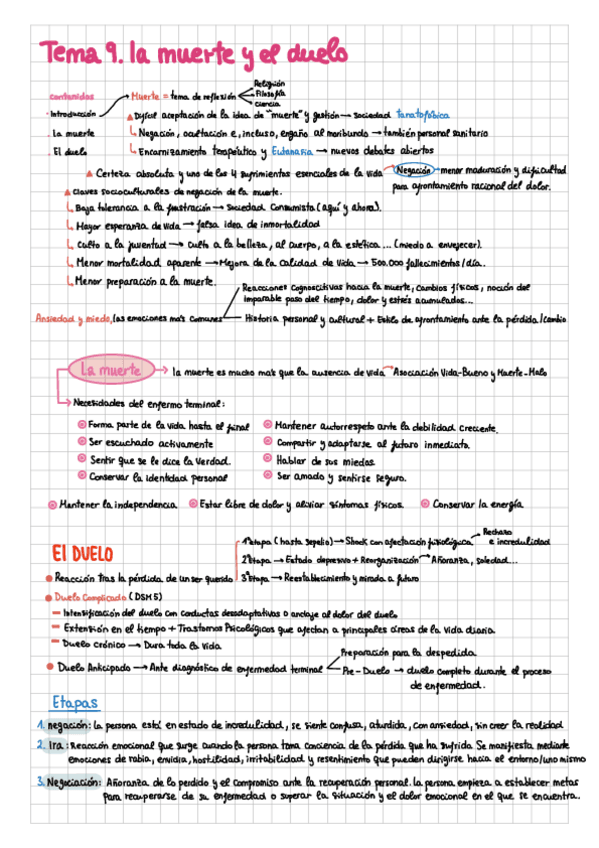 Tema 9. la muerte y el duelo
contenidos
· Introducción
· La muerte
· El duelo
Muerte = tema de reflexión
Religión
Filosofía
Ciencia
▲ Dificil aceptación de la idea de "muerte" y gestión → sociedad tanatofóbica
↳ Negación, ocultación e, incluso, engaño al moribundo → también personal sanitario
↳ Encarnizamiento terapéutico y Eutanasia → nuevos debates abiertos
▲ Certeza absoluta y uno de los 4 sufrimientos esenciales de la vida
Negación → menor maduración y dificultad
para afrontamiento racional del dolor.
▲ Claves socioculturales de negación de la muerte.
↳ Baja tolerancia a la frustración → Sociedad Consumista (aquí y ahora).
↳ Mayor esperanza de vida → falsa idea de inmortalidad
↳ Culto a la juventud → Culto a la belleza, al cuerpo, a la estética... (miedo a envejecer).
↳ Menor mortalidad aparente → Mejora de la Calidad de Vida → 500.000 fallecimientos/día..
↳ Menor preparación a la muerte.
Reacciones Cognoscitivas hacia la muerte, Cambios físicos, noción del
imparable paso del tiempo, dolor y estrés acumulados...
Ansiedad y miedo, las emociones más comunes
Historia personal y cultural + Estilo de afrontamiento ante la pérdida/cambio
La muerte → la muerte es mucho más que la ausencia de vida → Asociación Vida-Bueno y Muerte-Malo
→ Necesidades del enfermo terminal:
Forma parte de la vida hasta el final
Mantener autorrespeto ante la debilidad creciente.
Ser escuchado activamente
Compartir y adaptarse al futuro inmediato.
Sentir que se le dice la verdad.
Hablar de sus miedos
Conservar la identidad personal
Ser amado y sentirse seguro.
Mantener la independencia.
Estar libre de dolor y aliviar síntomas físicos.
Conservar la energía
El DUELO
1ªEtapa (hasta sepelio) → Shock con afectación fisiológica
Rechazo
e incredulidad
2ªEtapa → Estado depresivo + Reorganización → Añoranza, soledad...
● Reacción tras la pérdida de un ser querido
3ªEtapa → Reestablecimiento y mirada a futuro
● Duelo Complicado (DSM5)
- Intensificación del duelo con conductas desadaptativas o anclaje al dolor del duelo
- Extensión en el tiempo + Trastornos Psicológicos que afectan a principales áreas de la Vida diaria.
- Duelo crónico → Dura toda la vida
● Duelo Anticipado → Ante diagnóstico de enfermedad terminal
Preparación para la despedida
Pre-Duelo → duelo completo durante el proceso
de enfermedad.
Etapas
1. negación: La persona está en estado de incredulidad, se siente confusa, aturdida, con ansiedad, sin creer la realidad
2. Ira: Reacción emocional que surge cuando la persona toma conciencia de la pérdida que ha sufrido. Se manifiesta mediante
emociones de rabia, envidia, hostilidad, irritabilidad y resentimiento que pueden dirigirse hacia el entorno/uno mismo
3. Negociación: Añoranza de lo perdido y el compromiso ante la recuperación personal. La persona empieza a establecer metas
para recuperarse de su enfermedad o superar la situación y el dolor emocional en el que se encuentra..